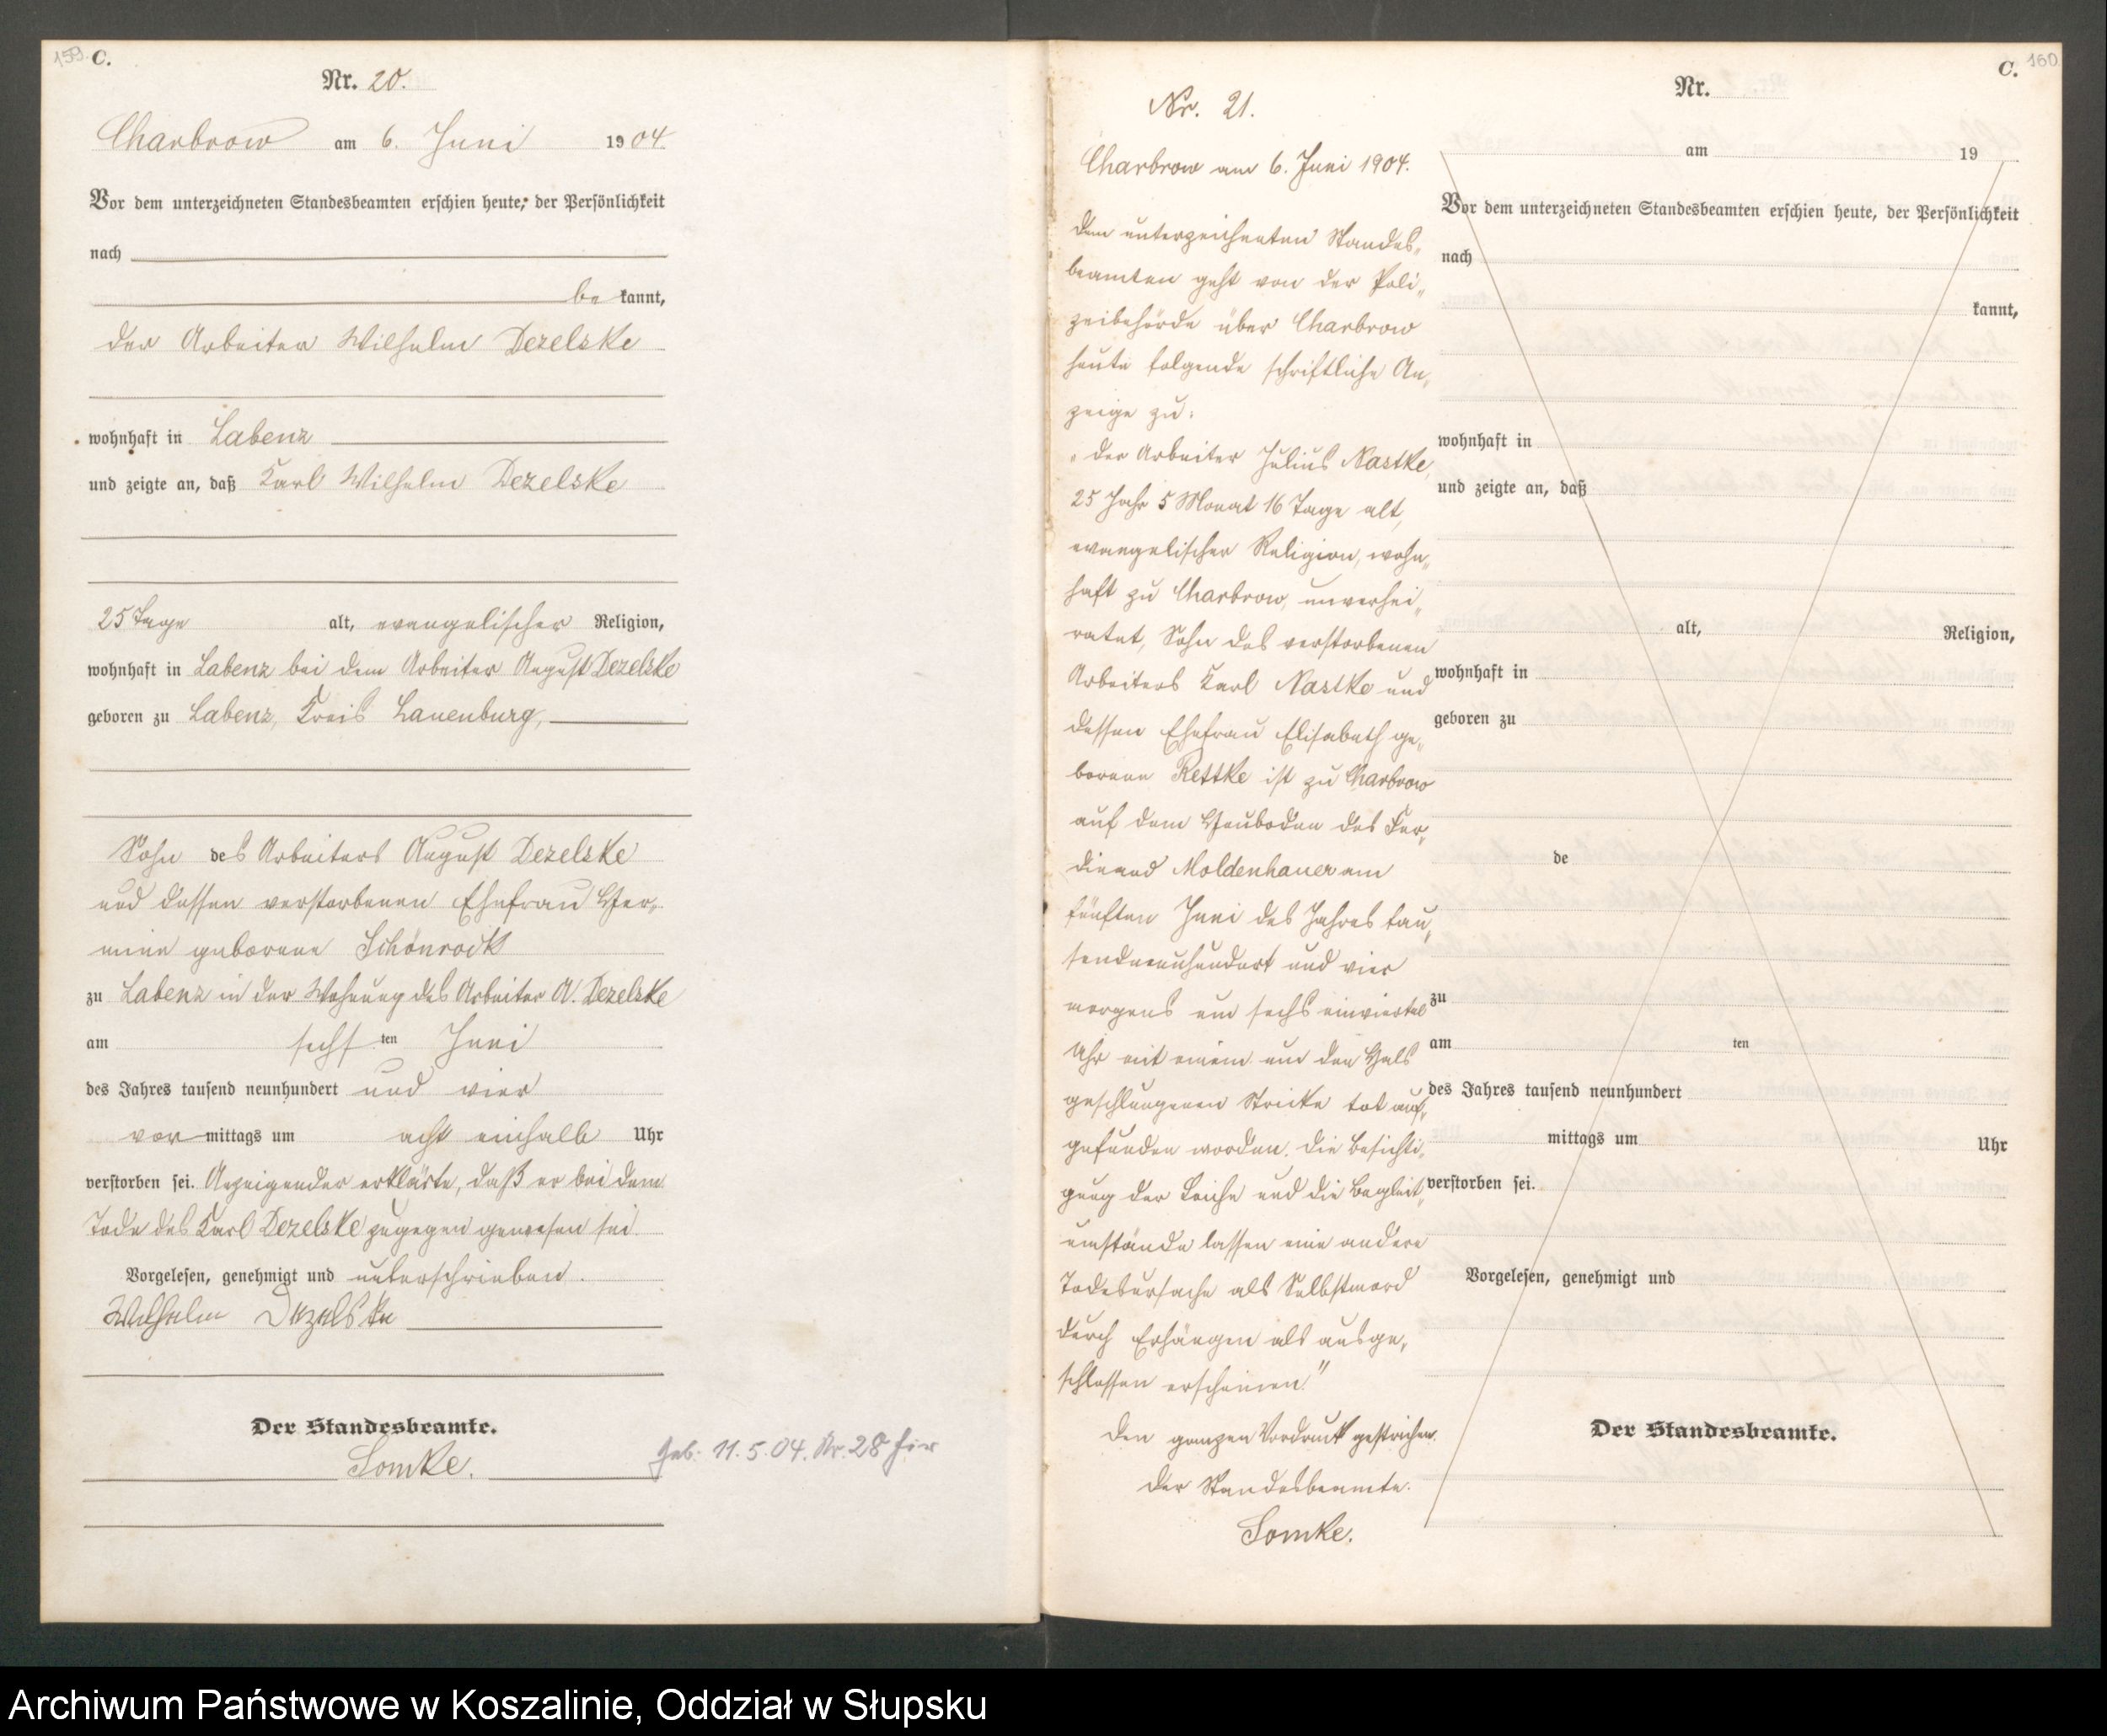 159. C.
Nr. 20.
Charbrow am 6. Juni 1904.
Vor dem unterzeichneten Standesbeamten erschien heute, der Persönlichkeit
nach
be kannt,
der Arbeiter Wilhelm Dezelske
wohnhaft in Labenz
und zeigte an, daß Karl Wilhelm Dezelske
25 Tage alt, evangelischer Religion,
wohnhaft in Labenz bei dem Arbeiter August Dezelske
geboren zu Labenz, Kreis Lauenburg,
Sohn des Arbeiters August Dezelske
und dessen verstorbenen Ehefrau Her„
mine geborene Schönrock
zu Labenz in der Wohnung des Arbeiter A. Dezelske
am sechsten Juni
des Jahres tausend neunhundert und vier
vor mittags um acht einhalb Uhr
verstorben sei. Anzeigender erklärte, daß er bei dem
Tode des Karl Dezelske zugegen gewesen sei.
Vorgelesen, genehmigt und unterschrieben.
Wilhelm Dezelske
Der Standesbeamte.
Somke.
Geb. 11.5.04. Nr. 28 hier
Nr. 21.
Charbrow am 6. Juni 1904.
Dem unterzeichneten Standes„
beamten geht von der Poli„
zeibehörde über Charbrow
heute folgende schriftliche An„
zeige zu:
„Der Arbeiter Julius Nastke,
25 Jahr 5 Monat 16 Tage alt,
evangelischer Religion, wohn„
haft zu Charbrow, unverhei„
ratet, Sohn des verstorbenen
Arbeiters Karl Nastke und
dessen Ehefrau Elisabeth ge„
borene Rettke ist zu Charbrow
auf dem Heuboden des Fer„
dinand Moldenhauer am
fünften Juni des Jahres tau„
sendneunhundert und vier
morgens um sechs einviertel
Uhr mit einem um den Hals
geschlungenen Stricke tot auf„
gefunden worden. Die Besichti„
gung der Leiche und die Begleit„
umstände lassen eine andere
Todesursache als Selbstmord
durch Erhängen als ausge„
schlossen erscheinen."
Den ganzen Vordruck gestrichen.
Der Standesbeamte.
Somke.
C. 160
Nr.
am 19
Vor dem unterzeichneten Standesbeamten erschien heute, der Persönlichkeit
nach
kannt,
wohnhaft in
und zeigte an, daß
alt, Religion,
wohnhaft in
geboren zu
de
zu
am ten
des Jahres tausend neunhundert
mittags um Uhr
verstorben sei.
Vorgelesen, genehmigt und
Der Standesbeamte.
Archiwum Państwowe w Koszalinie, Oddział w Słupsku